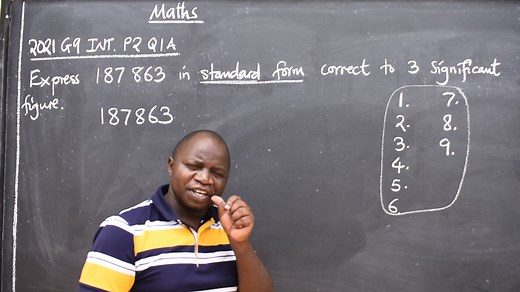 Maths
2021 G9 INT. P2 Q1A
Express 187 863 in standard form correct to 3 significant
figure.
187863
1. 7.
2. 8.
3. 9.
4.
5.
6.